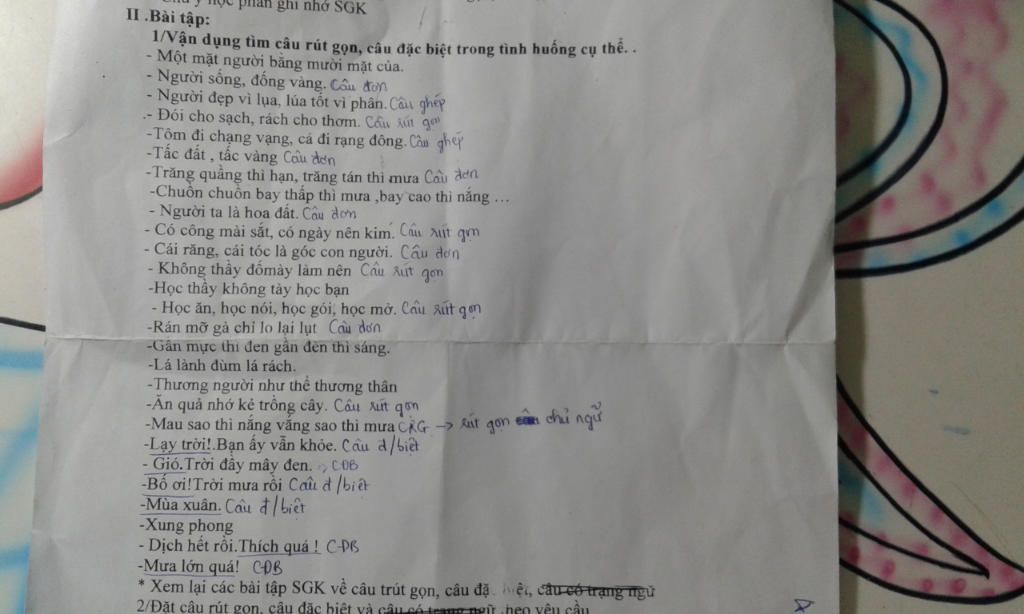 học phần ghi nhớ SGK
II .Bài tập:
1/Vận dụng tìm câu rút gọn, câu đặc biệt trong tình huống cụ thể. .
- Một mặt người bằng mười mặt của.
- Người sống, đống vàng. Câu đơn
- Người đẹp vì lụa, lúa tốt vì phân. Câu ghép
.- Đói cho sạch, rách cho thơm. Câu rút gọn
-Tôm đi chạng vạng, cá đi rạng đông. Câu ghép
-Tấc đất , tấc vàng Câu đơn
-Trăng quầng thì hạn, trăng tán thì mưa Câu đơn
-Chuồn chuồn bay thấp thì mưa ,bay cao thì nắng ...
- Người ta là hoa đất. Câu đơn
- Có công mài sắt, có ngày nên kim. Câu rút gọn
- Cái răng, cái tóc là góc con người. Câu đơn
- Không thầy đốmày làm nên Câu rút gọn
-Học thầy không tày học bạn
- Học ăn, học nói, học gói, học mở. Câu rút gọn
-Rán mỡ gà chỉ lo lại lụt Câu đơn
-Gần mực thì đen gần đèn thì sáng.
-Lá lành đùm lá rách.
-Thương người như thể thương thân
-Ăn quả nhớ kẻ trồng cây. Câu rút gọn
-Mau sao thì nắng vắng sao thì mưa CRG → rút gọn chủ ngữ
-Lạy trời!.Bạn ấy vẫn khỏe. Câu đ/biệt
- Gió.Trời đầy mây đen. CĐB
-Bố ơi!Trời mưa rồi Câu đ/biệt
-Mùa xuân. Câu đ/biệt
-Xung phong
- Dịch hết rồi.Thích quá ! CĐB
-Mưa lớn quá! CĐB
* Xem lại các bài tập SGK về câu trút gọn, câu đặ câu có trạng ngữ
2/Đặt câu rút gọn, câu đặc biệt và câu có trạng ngữ theo yêu cầu